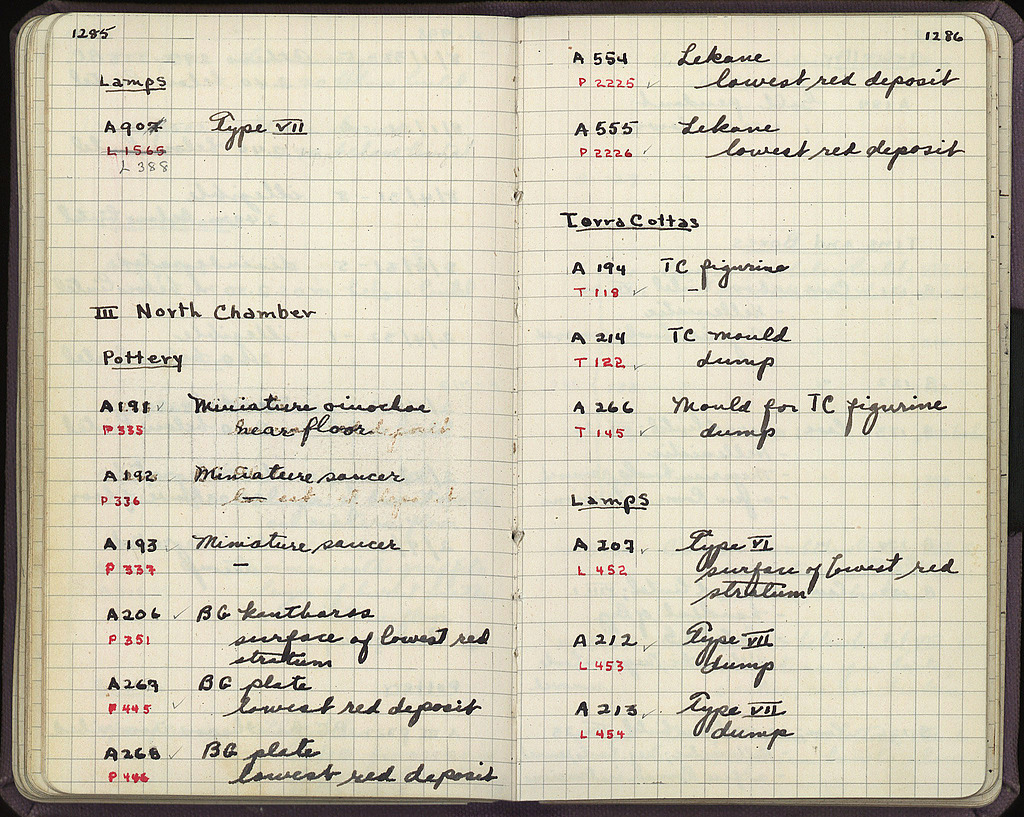 1285
Lamps
A907 Type VII
L 1565
L 388
III North Chamber
Pottery
A191 Miniature oinochoe
P 335 near floor
A192 Miniature saucer
P 336 —
A 193 Miniature saucer
P 337 —
A206 BG kantharos
P 351 surface of lowest red
stratum
A267 BG plate
P 445 lowest red deposit
A268 BG plate
P 446 lowest red deposit
1286
A 554 Lekane
P 2225 lowest red deposit
A 555 Lekane
P 2226 lowest red deposit
Terra Cottas
A 194 TC figurine
T 118 —
A 214 TC mould
T 122 dump
A 266 Mould for TC figurine
T 145 dump
Lamps
A 207 Type VI
L 452 surface of lowest red
stratum
A 212 Type VII
L 453 dump
A 213 Type VII
L 454 dump